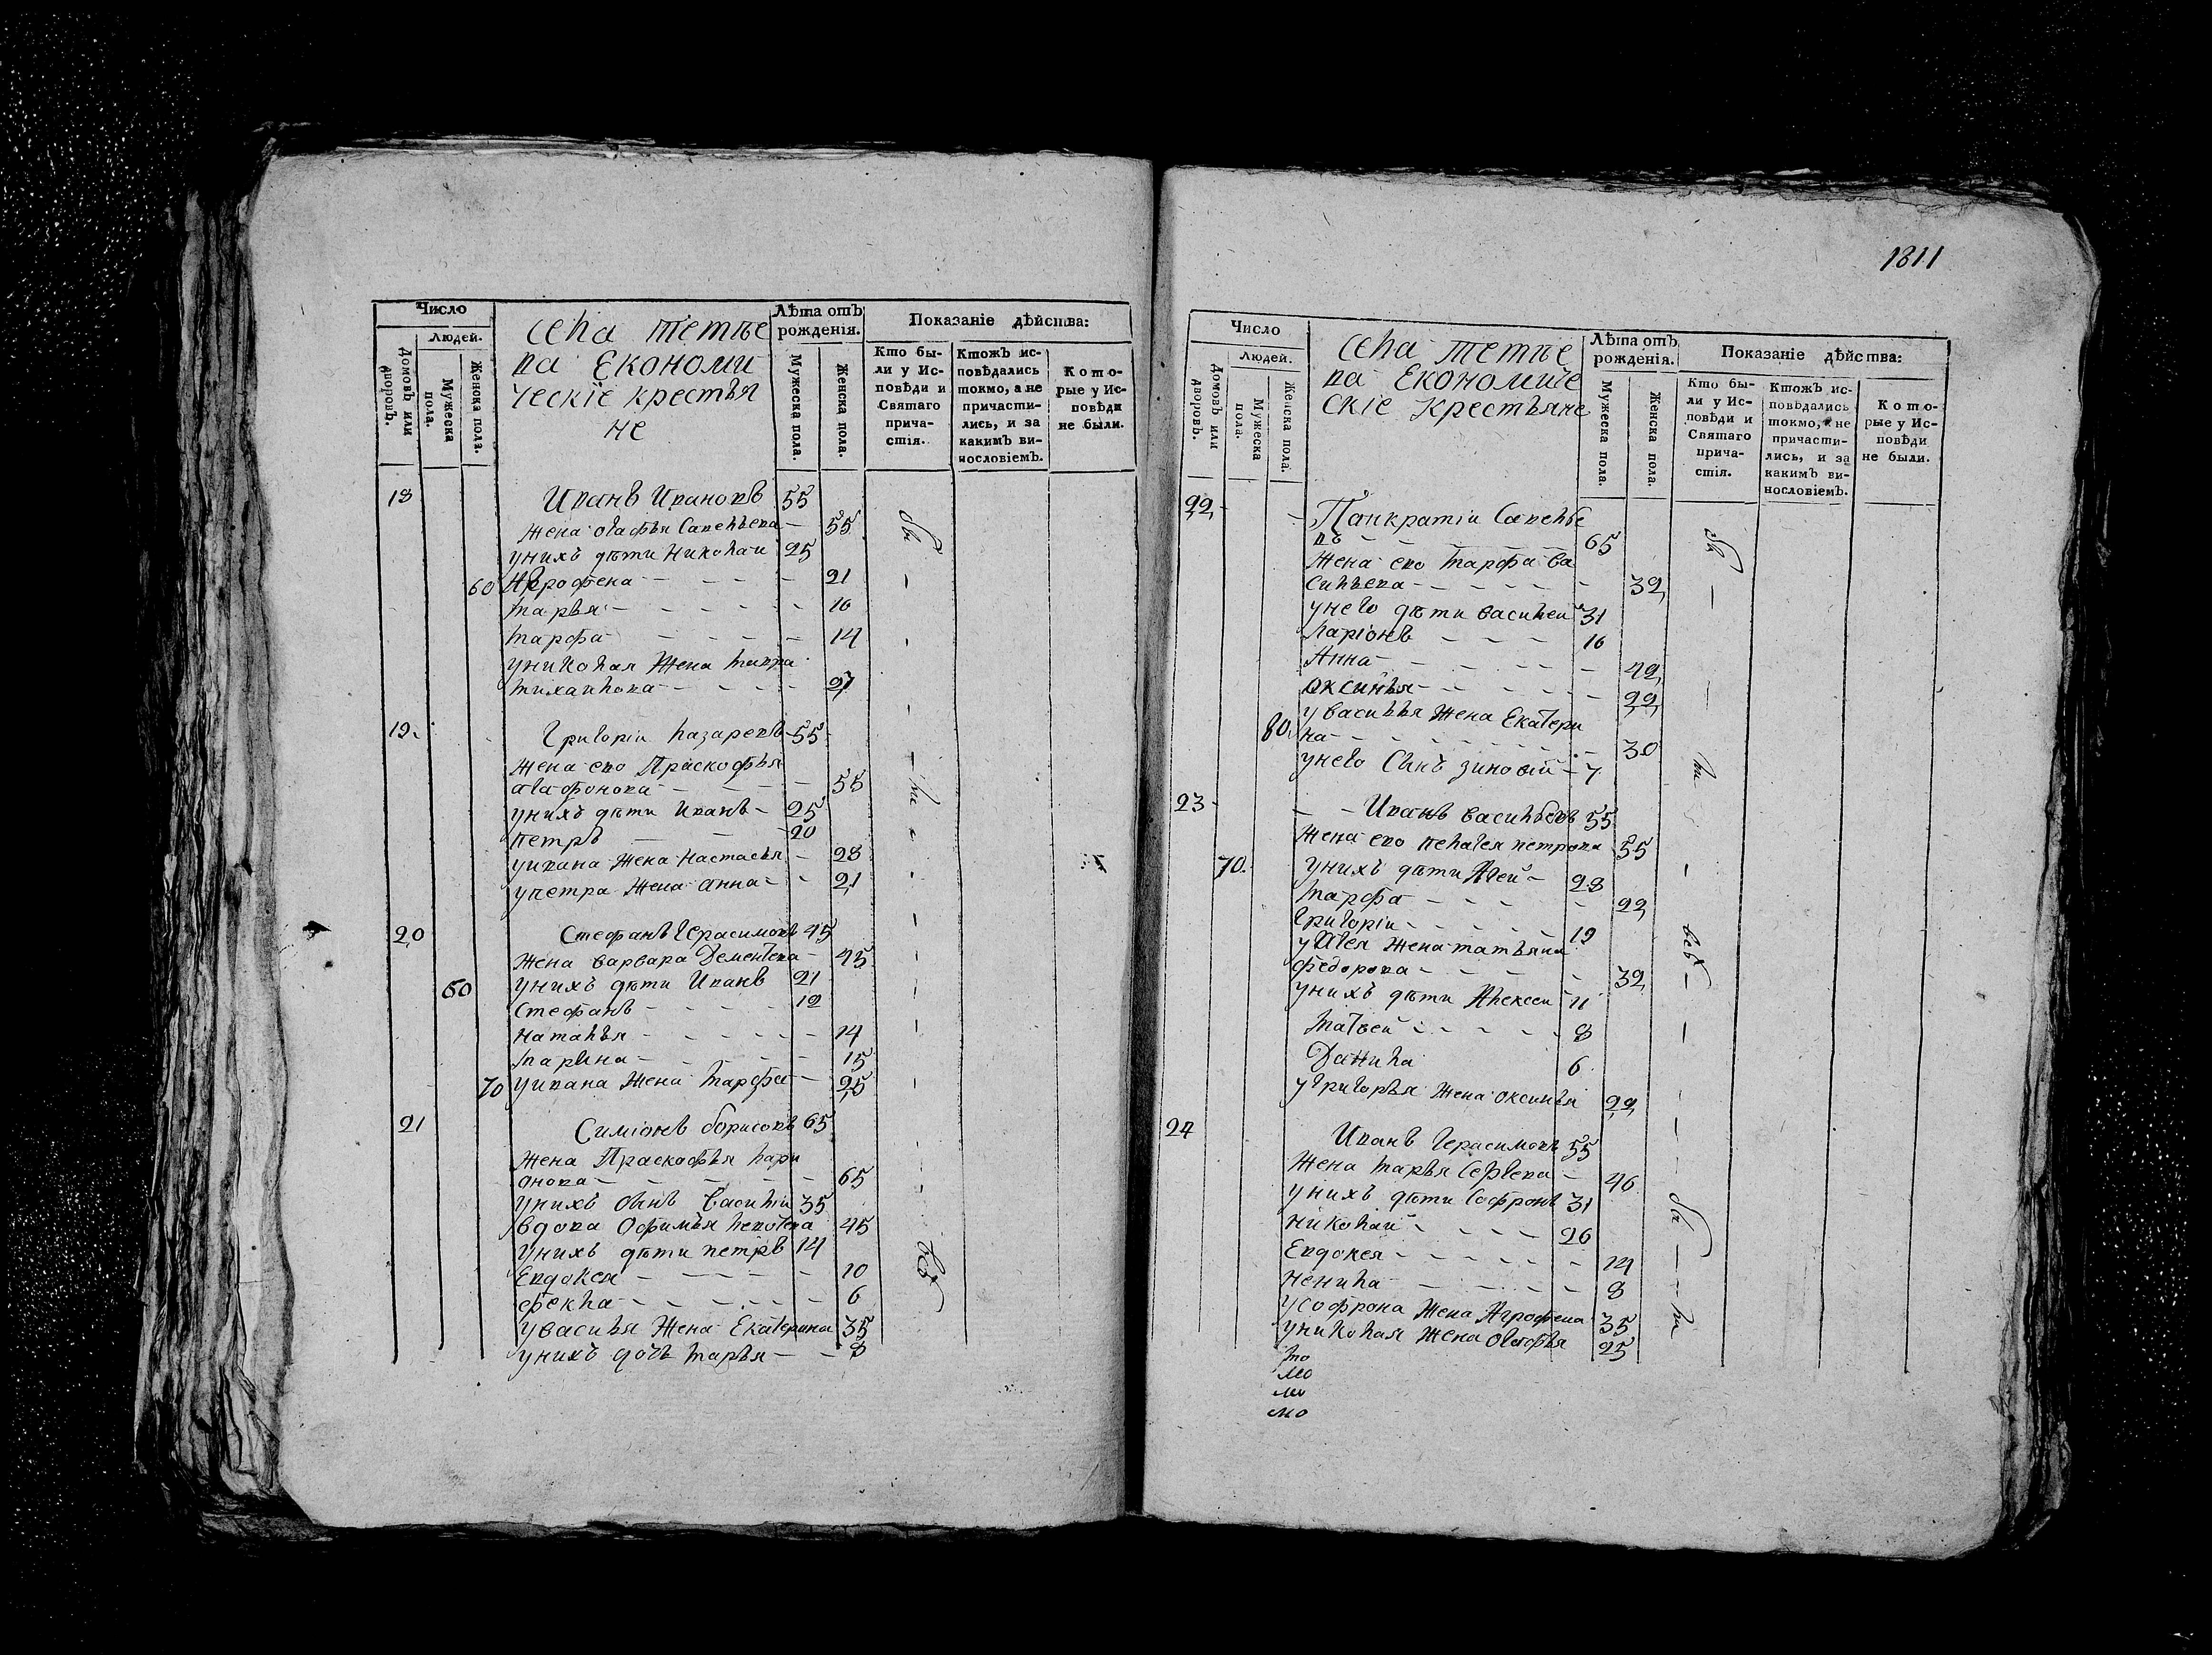 Число
Людей.
Домовъ или дворовъ.
Мужеска пола.
Женска пола.
села мемле
ва Економи
ческіе крестья
не
Лѣта отъ рожденія.
Мужеска пола.
Женска пола.
Показаніе дѣйства:
Кто были у Исповѣди и Святаго причастія.
Ктожъ исповѣдались токмо, а не причастились, и за какимъ винословіемъ.
Которые у Исповѣди не были.
18 Иванъ Ивановъ 55
жена Агафья Савельева 55
унихъ дѣти Николай 25
60 Агрофена 21
марья 16
марфа 14
униколая Жена мавра
михаилова 27
19. Григоріи лазаревъ 55
Жена ево Праскофья
агафонова 55
унихъ дѣти Иванъ 25
петръ 20
уивана Жена Настасья 28
упетра Жена анна 21
20 Стефанъ Герасимовъ 45
Жена варвара Дементева 45
60 унихъ дѣти Иванъ 21
Стефанъ 12
Наталья 14
марина 15
70 уивана Жена марфа 25
21 Симіонъ борисовъ 65
Жена Праскофья лари
онова 65
унихъ сынъ Василій 35
вдова Офимья 45
унихъ дѣти петръ 14
Евдокея 10
фекла 6
увасилья Жена Екатерина 35
унихъ дочь марья 8
1811
Число
Людей.
Домовъ или дворовъ.
Мужеска пола.
Женска пола.
села мемле
ва Економиче
скіе крестьяне
Лѣта отъ рожденія.
Мужеска пола.
Женска пола.
Показаніе дѣйства:
Кто были у Исповѣди и Святаго причастія.
Ктожъ исповѣдались токмо, а не причастились, и за какимъ винословіемъ.
Которые у Исповѣди не были.
22 Панкратіи Савелье
въ 65
Жена ево марфа ва
сильева 32
унего дѣти василеи 31
ларіонъ 16
Анна 42
оксинья 22
увасилья Жена Екатери
80 на 30
унего Сынъ зиновій 7
23 Иванъ васильевъ 55
Жена ево пелагея петрова 55
70. унихъ дѣти Агей 28
марфа 22
Григоріи 19
уАгея Жена татьяна
федорова 32
унихъ дѣти Алексеи 11
матвеи 8
Данила 6
угригорья Жена оксинья 22
24 Иванъ Герасимовъ 55
Жена марья Сергева 46
унихъ дѣти Софронъ 31
николаи 26
Евдокея 14
ненила 8
усофрона Жена Агрофена 35
униколая Жена Огафья 25
мо
мо
мо
мо